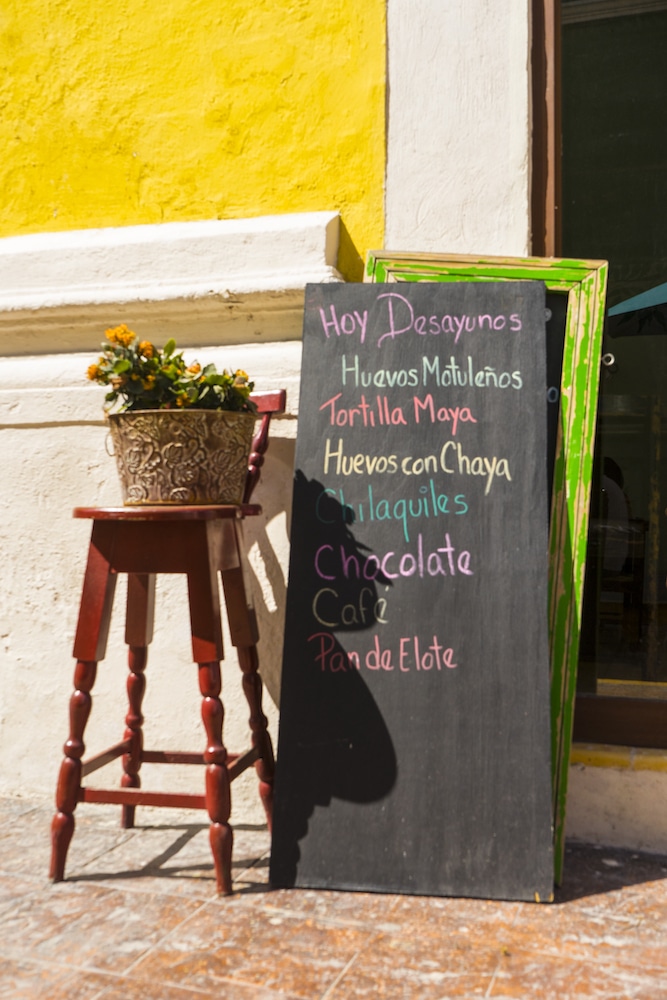 Hoy Desayunos
Huevos Motuleños
Tortilla Maya
Huevos con Chaya
Chilaquiles
Chocolate
Café
Pan de Elote